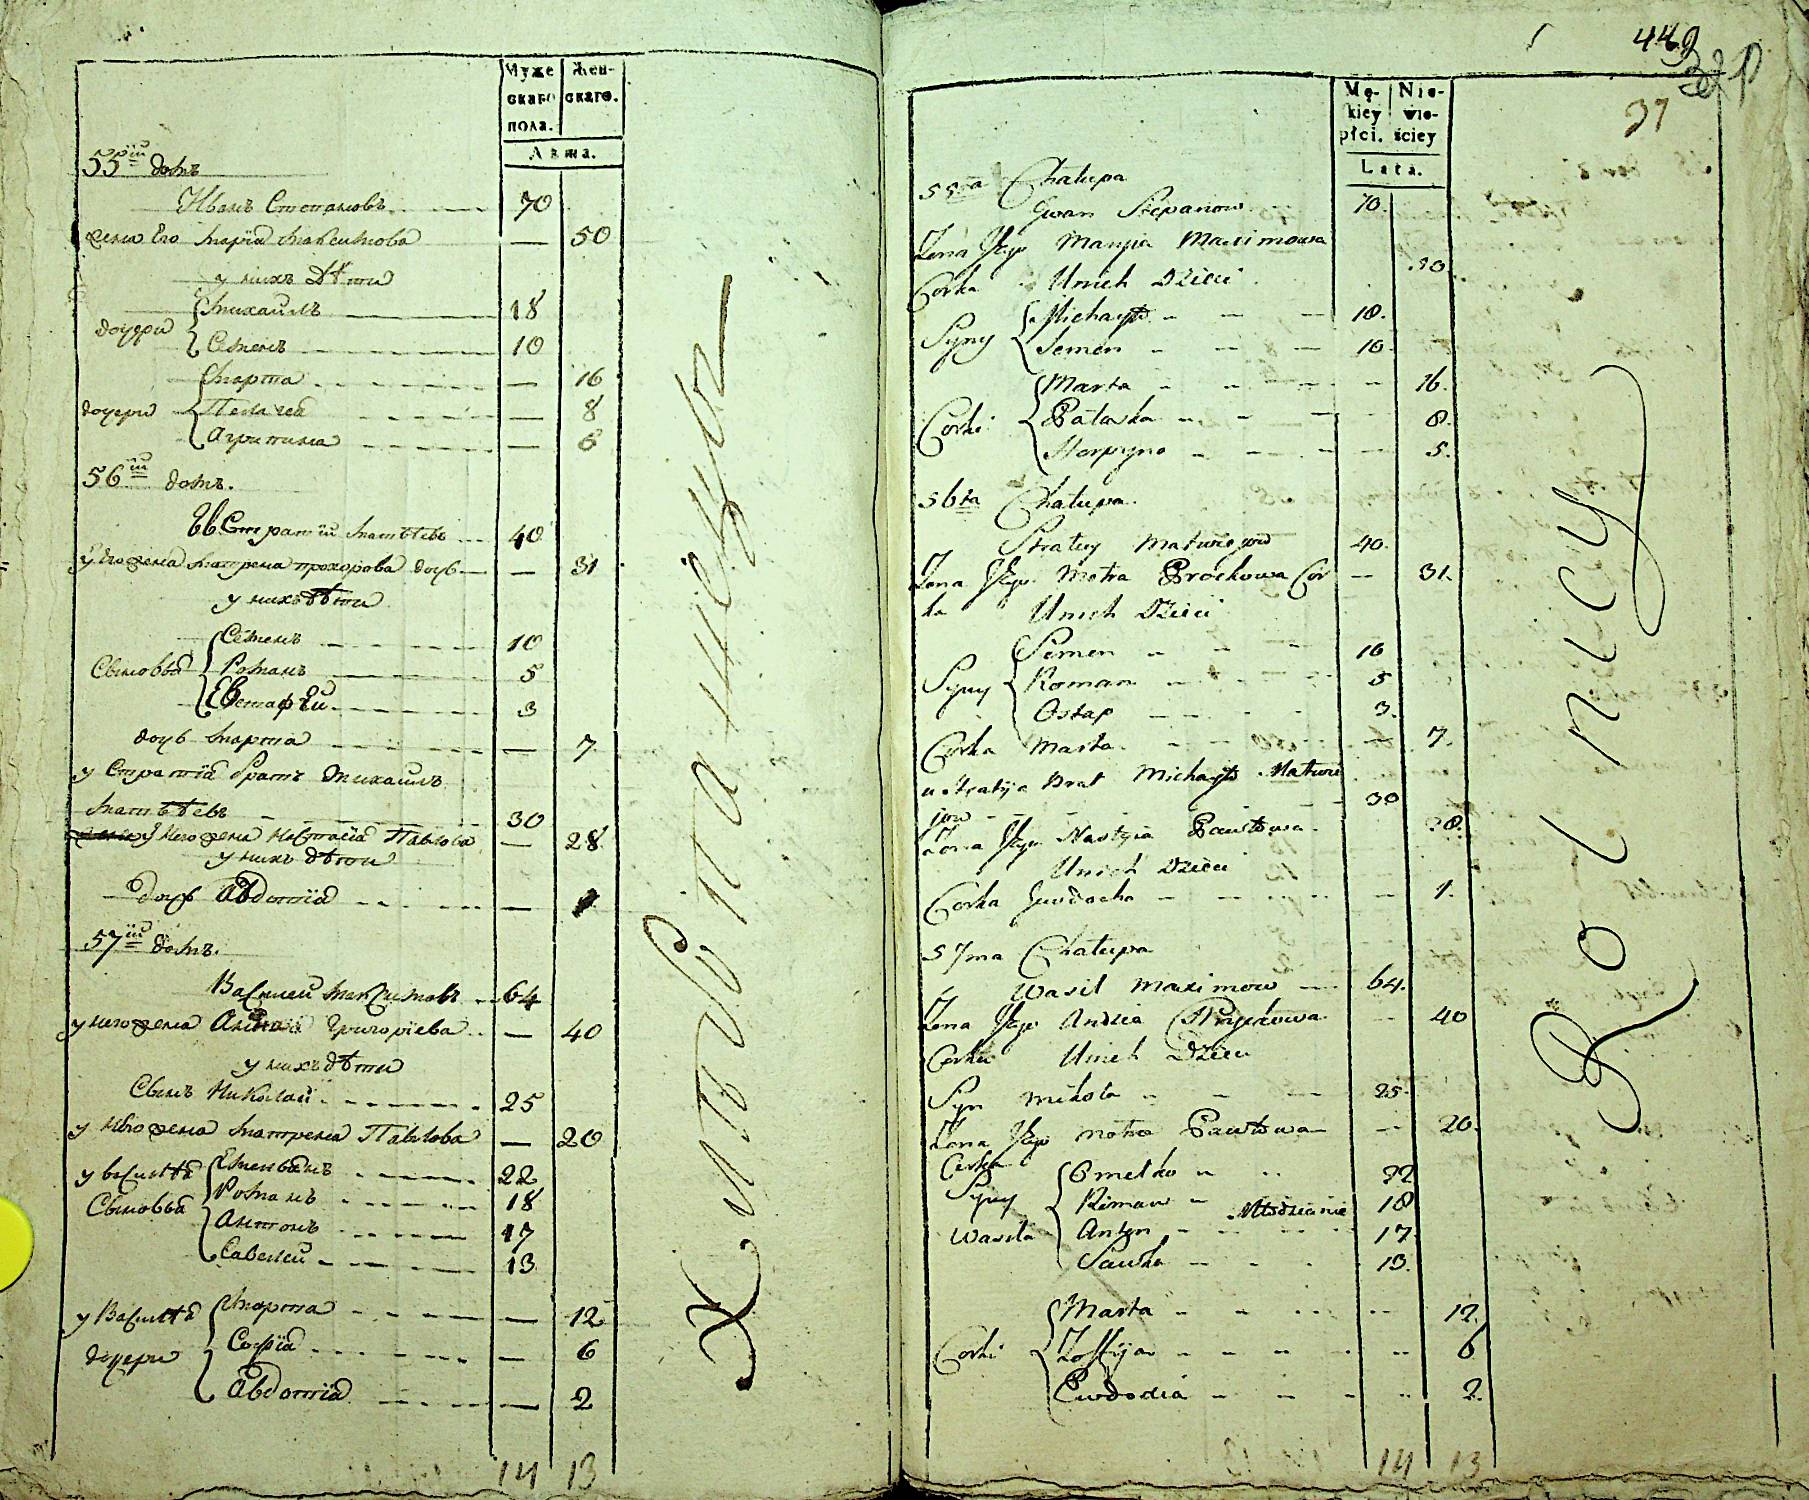 Муже
скаго
пола.
Жен-
скаго.
Лѣта.
55ій домъ
Иванъ Степановъ 70
жена Его Марія Максимова — 50
у нихъ Дѣти
Михаилъ 18
дочери
Семенъ 10
Марта — 16
дочери Пелагея — 8
Агрипина — 6
56ій домъ.
Евстратій Матвѣевъ 40
у Его жена Матрена прохорова дочь — 31
у нихъ дѣти
Семенъ 10
Сыновья Романъ 5
Евстафѣй 3
дочь Марта — 7
у Стратія братъ Михаилъ
Матвѣевъ 30
у него жена Настасія Павлова — 28
у нихъ дѣти
дочь Авдотія —
57ій домъ.
Василей Максимовъ 64
у него жена Григоріева — 40
у нихъ дѣти
Сынъ Николай 25
у Него жена Матрена Павлова — 20
у Василѣя Емельянъ 22
Сыновья Романъ 18
Антонъ 17
Савелей 13
у Василѣя Марта — 12
дочери Софія — 6
Авдотія — 2
14 13
Хлѣбопашецы
449
37
Mę-
kiey
płci.
Nie-
wie-
ściey
Lata.
55ta Chałupa
Jwan Stepanow 70.
Żona Jego Maryia Maximowa
Corka Unich Dzieci 50
Syny Michayło 18.
Semen 10.
Marta 16.
Corki Pałaska 8.
Horpyna 5.
56ta Chałupa
Stratiy Matwiejow 40.
Żona Jego Motra Prochowa Cor 31.
ka Unich Dzieci
Semen 10
Syny Roman 5
Ostap 3.
Corka Marta 7.
u Stratija Brat Michayło Matwie
jow 30
Żona Jego Nastyia Pawłowa 28.
Unich Dzieci
Corka Jewdocha 1.
57ma Chałupa
Wasil Maximow 64.
Żona Jego 40
Corka Unich Dzieci
Syn Mikoła 25.
Żona Jego Motra Pawłowa 20.
Corka Omelko 22
Syny Roman 18
Młodzianie
Wasila Anton 17.
Sawka 13.
Marta 12.
Corki Zoffija 6
Ewdodia 2.
14 13
Rolnicy